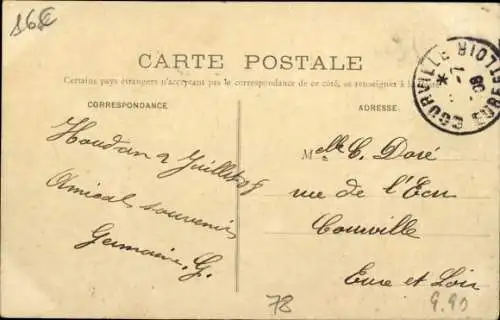 16€
CARTE POSTALE
Certains pays étrangers n'acceptant pas le correspondance de ce côté, se renseigner à la
CORRESPONDANCE
ADRESSE
Houdan 2 Juillet 08
Amical souvenir
Germaine. G.
Melle C. Doré
rue de l'Ecu
Courville
Eure et Loir
COURVILLE
LOIR
08
78
9.90